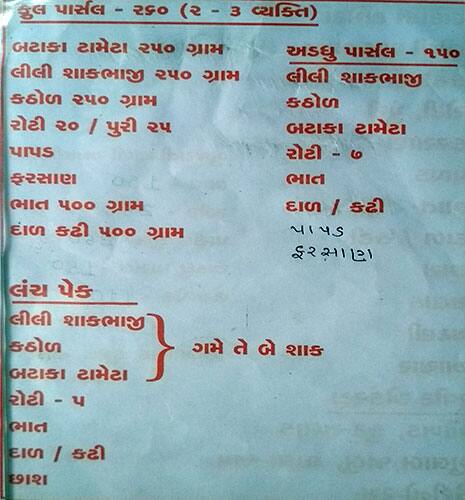 ફુલ પાર્સલ - ૨૬૦ (૨ - ૩ વ્યક્તિ)
બટાકા ટામેટા ૨૫૦ ગ્રામ
લીલી શાકભાજી ૨૫૦ ગ્રામ
કઠોળ ૨૫૦ ગ્રામ
રોટી ૨૦ / પુરી ૨૫
પાપડ
ફરસાણ
ભાત ૫૦૦ ગ્રામ
દાળ કઢી ૫૦૦ ગ્રામ
અડધુ પાર્સલ - ૧૫૦
લીલી શાકભાજી
કઠોળ
બટાકા ટામેટા
રોટી - ૭
ભાત
દાળ / કઢી
પાપડ
ફરસાણ
લંચ પેક
લીલી શાકભાજી
કઠોળ
બટાકા ટામેટા
ગમે તે બે શાક
રોટી - ૫
ભાત
દાળ / કઢી
છાશ